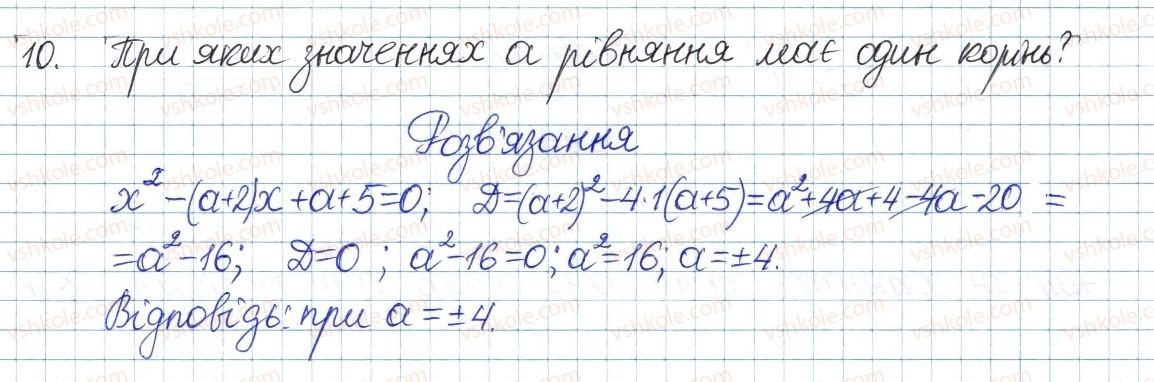 10. При яких значеннях а рівняння має один корінь?
Розв'язання
x² - (a+2)x + a + 5 = 0; Д = (a+2)² - 4·1(a+5) = a² + 4a + 4 - 4a - 20 =
= a² - 16; Д = 0; a² - 16 = 0; a² = 16; a = ±4.
Відповідь: при a = ±4.